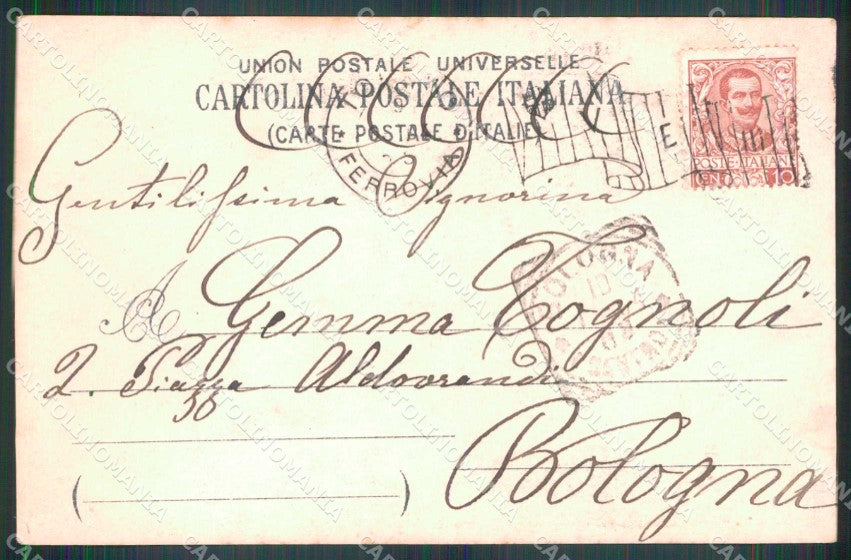 UNION POSTALE UNIVERSELLE
CARTOLINA POSTALE ITALIANA
(CARTE POSTALE D'ITALIE)
FERROVIA
POSTE ITALIANE
10
Gentilissima Signorina
BOLOGNA
10
Gemma Tognoli
2. Piazza Aldovrandi
Bologna
CARTOLINOMANIA